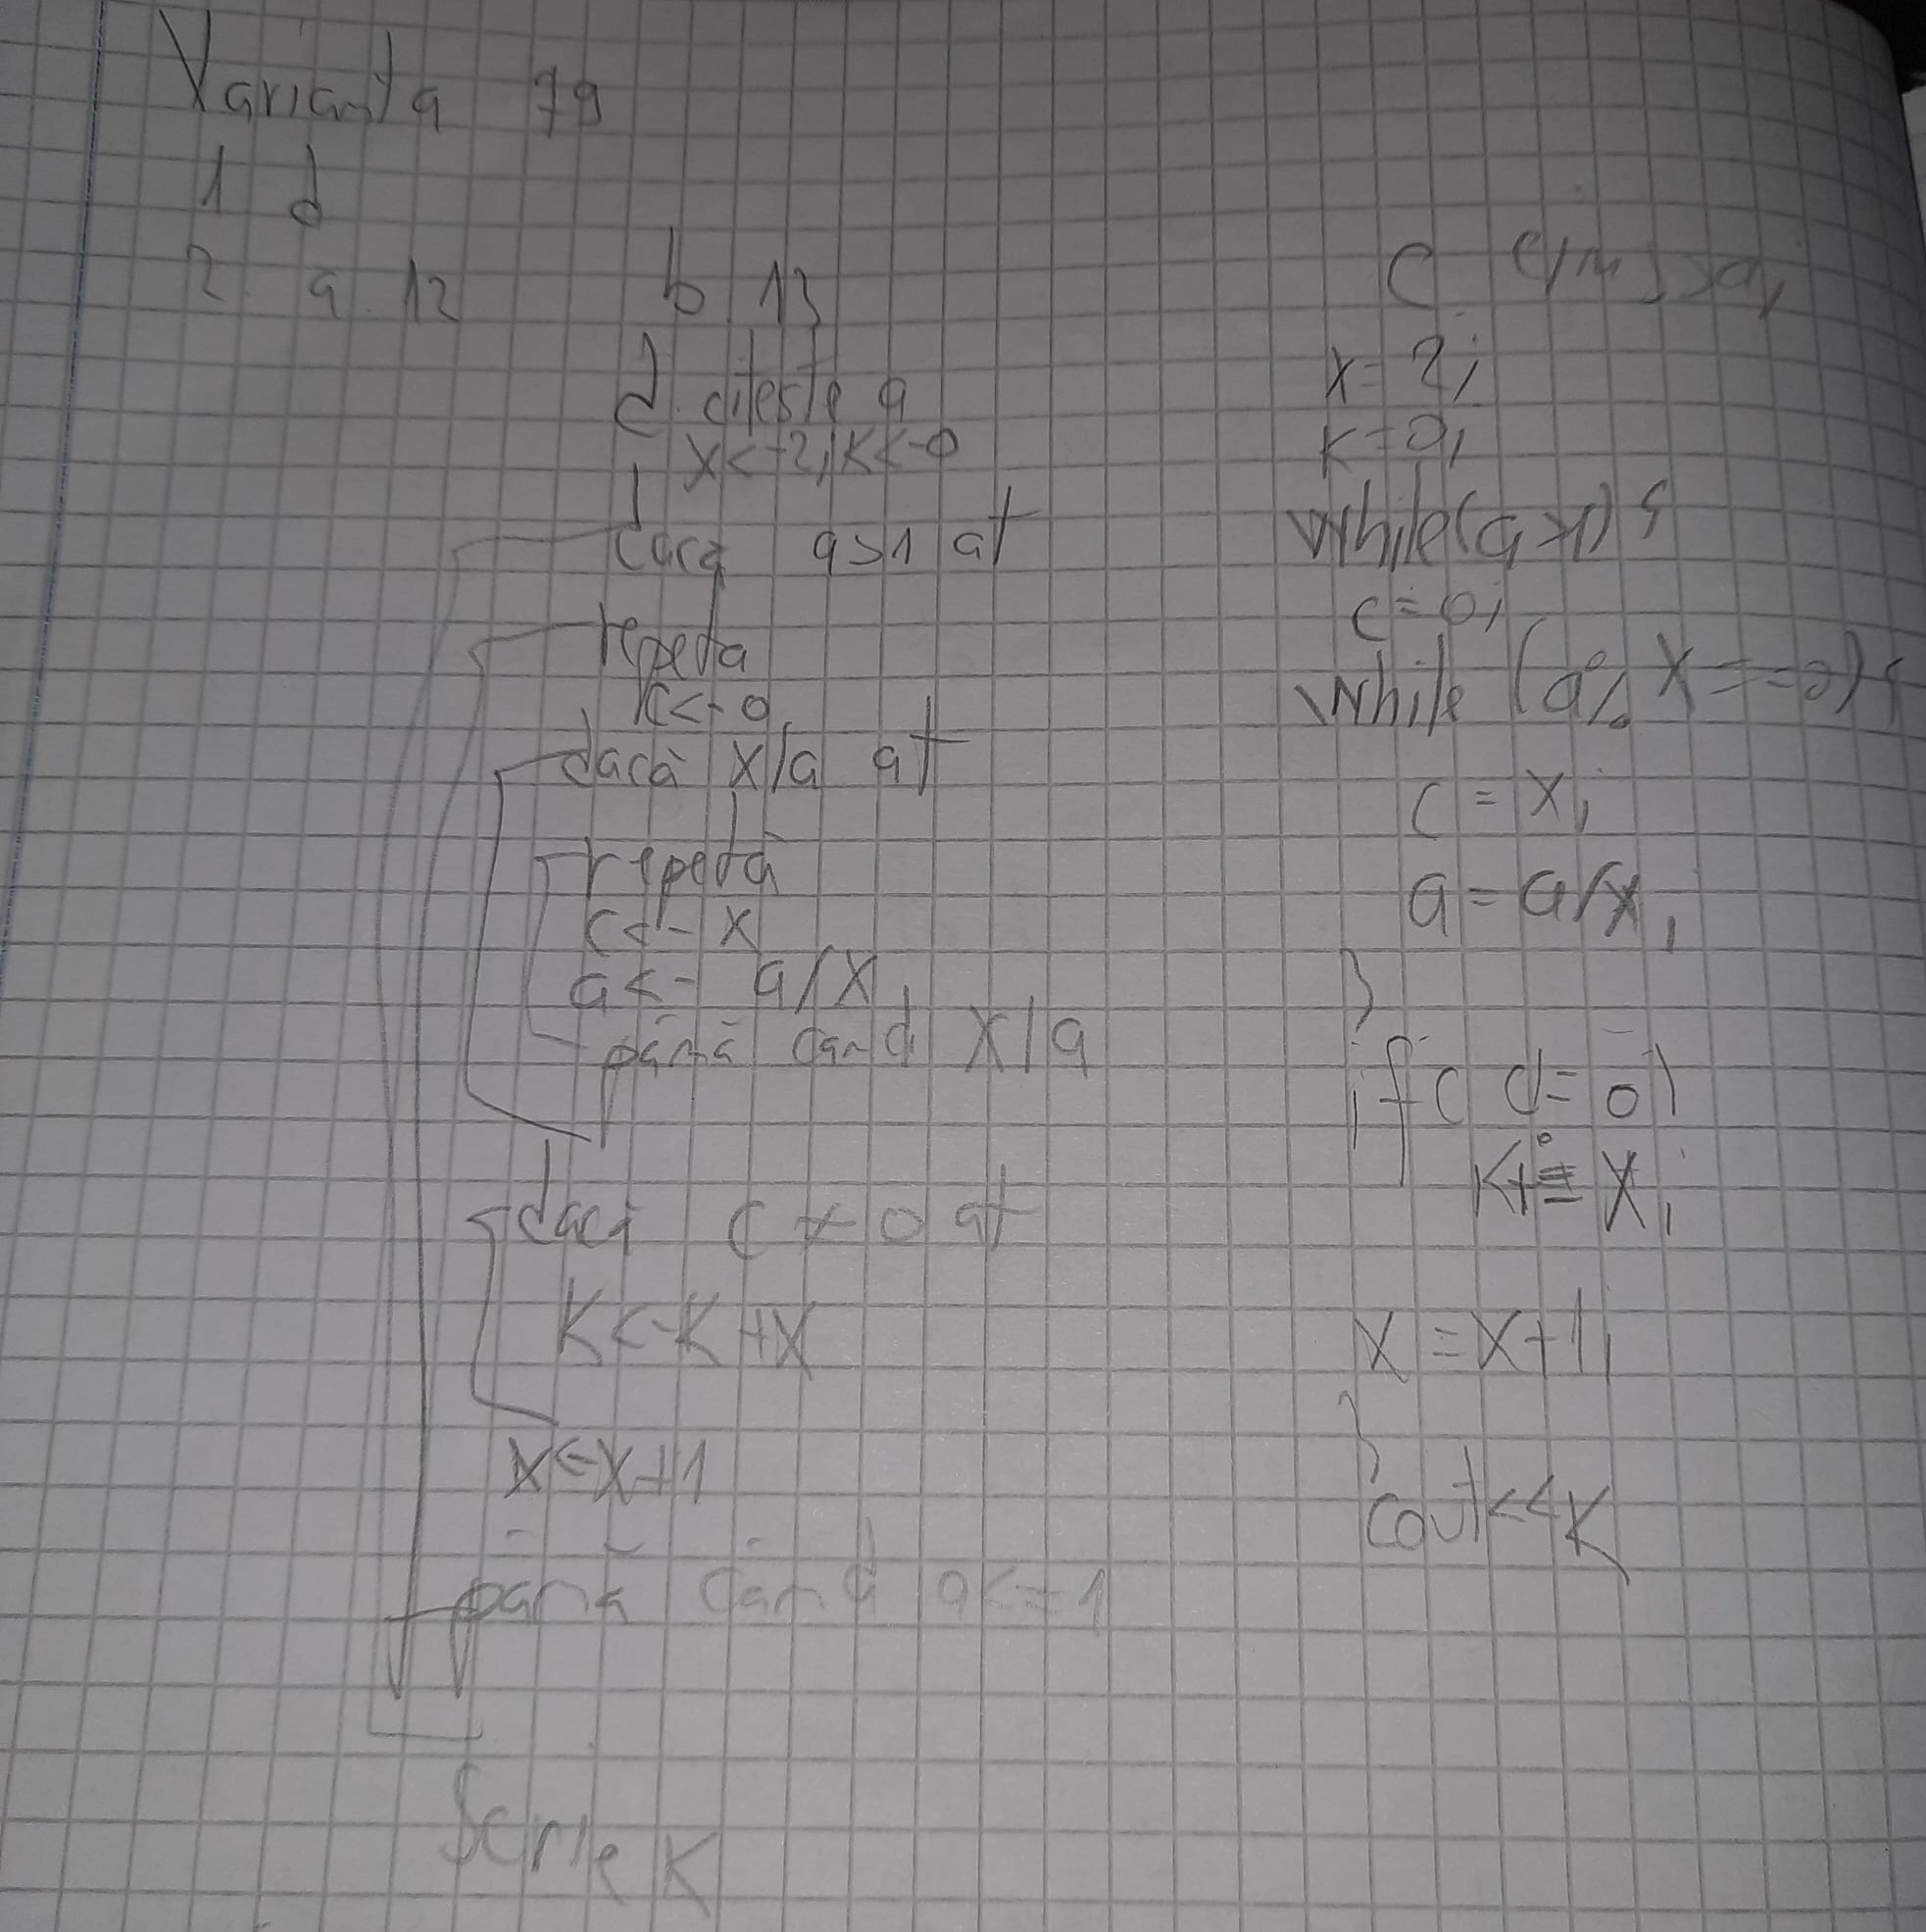 Varianta 79
1 d
2. a. 12 b. 13
d. citeste a
x<-2; k<-0
dacă a>1 at
repeta
c<-0
dacă x|a at
repetă
c<- x
a<- a/x
până cand x|a
dacă c ≠ 0 at
K<-K+X
x<-x+1
până când a<=1
Scrie K
C cin>>a;
x=2;
k=0;
while(a>1){
c=0;
while (a%x==0){
c=x;
a=a/x;
}
if( c!=0)
K+=x;
x=x+1;
}
cout<<K